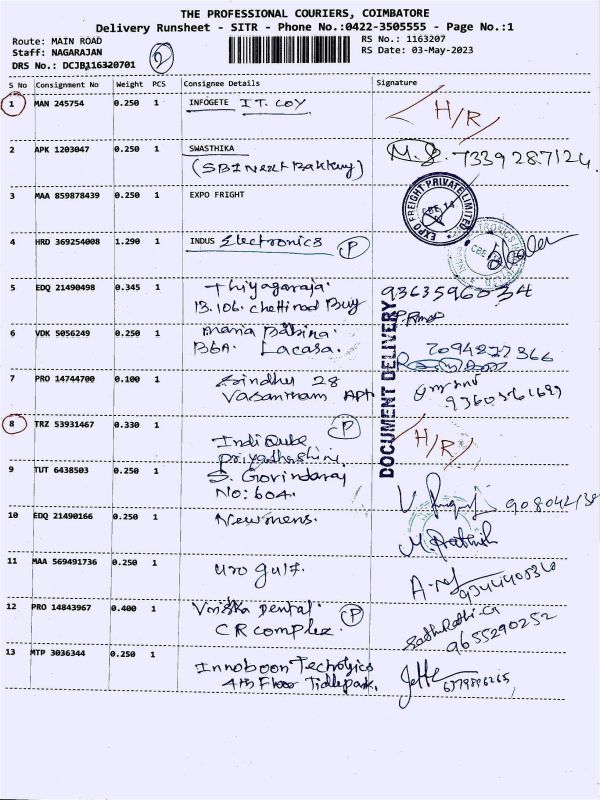 THE PROFESSIONAL COURIERS, COIMBATORE
Delivery Runsheet - SITR - Phone No.:0422-3505555 - Page No.:1
Route: MAIN ROAD
RS No.: 1163207
Staff: NAGARAJAN
RS Date: 03-May-2023
DRS No.: DCJB116320701
2
S No Consignment No Weight PCS Consignee Details Signature
1 MAN 245754 0.250 1 INFOGETE I T. COY
H/R
2 APK 1203047 0.250 1 SWASTHIKA
(SBI Next Bakkery)
M.S. 7339287124
3 MAA 859878439 0.250 1 EXPO FRIGHT
EXPO FREIGHT PRIVATE LIMITED
4 HRD 369254008 1.290 1 INDUS Electronics P
5 EDQ 21490498 0.345 1 Thiyagaraja
B.106. Chettinad Buy
9363596034
6 VDK 5056249 0.250 1 maria
B6A. Lacasa.
7094277366
7 PRO 14744700 0.100 1 Sindhu 28
Vasantham APt
DOCUMENT DELIVERY
8 TRZ 53931467 0.330 1 P
IndiQube
Priyadharshini
H/R
9 TUT 6438503 0.250 1 S. Govindaraj
No: 604.
10 EDQ 21490166 0.250 1 Newmens.
M. Prathish
11 MAA 569491736 0.250 1 uro gulf.
12 PRO 14843967 0.400 1 Dental P
CR complex.
9655290252
13 MTP 3036344 0.250 1 Innoboon
4th Floor Tidlepark.